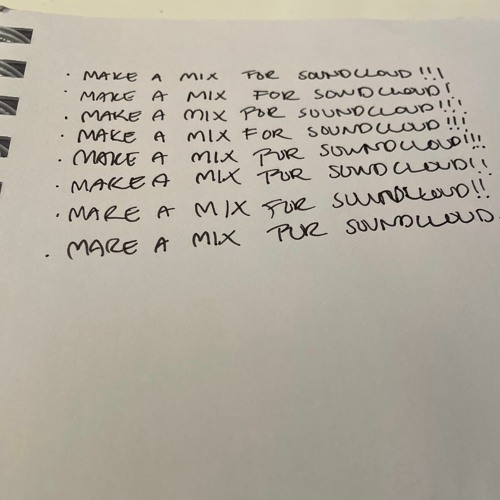 · MAKE A MIX FOR SOUNDCLOUD!!!
· MAKE A MIX FOR SOUNDCLOUD!
· MAKE A MIX FOR SOUNDCLOUD!!!
· MAKE A MIX FOR SOUNDCLOUD!!!
· MAKE A MIX FOR SOUNDCLOUD!!!
· MAKE A MIX FOR SOUNDCLOUD!!
· MAKE A MIX FOR SOUNDCLOUD!!
· MAKE A MIX FOR SOUNDCLOUD